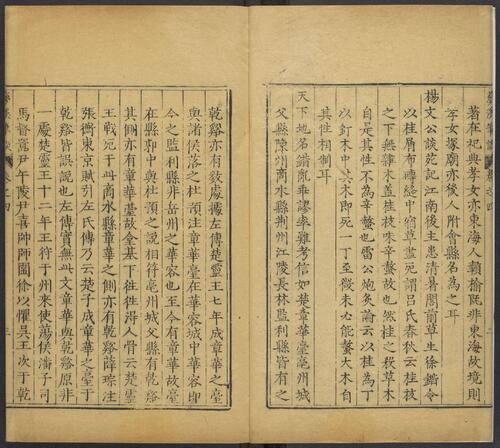 著在祀典孝女亦東海人贛榆既非東海故境則
孝女塚廟亦後人附會縣名為之耳
楊文公談苑記江南後主患清暑閣前草生徐鍇令
以桂屑布磚縫中宿草盡死謂呂氏春秋云桂枝
之下無雜木蓋桂枝味辛螫故也然桂之殺草木
自是其性不為辛螫也雷公炮炙論云以桂為丁
以釘木中其木即死一丁至微未必能螫大木自
其性相制耳
天下地名錯亂乖謬率難考信如楚章華臺亳州城
父縣陳州商水縣荊州江陵長林監利縣皆有之
乾谿亦有數處據左傳楚靈王七年成章華之臺
與諸侯落之杜預注章華臺在華容城中華容即
今之監利縣非岳州之華容也至今有章華故臺
在縣郭中與杜預之說相符亳州城父縣有乾谿
其側亦有章華臺故臺基下往往得人骨云楚靈
王戰死于此商水縣章華之側亦有乾谿薛綜注
張衡東京賦引左氏傳乃云楚子成章華之臺于
乾谿皆誤說也左傳實無此文章華與乾谿原非
一處楚靈王十二年王狩于州來使蕩侯潘子司
馬督囂尹午陵尹喜帥師圍徐以懼吳王次于乾